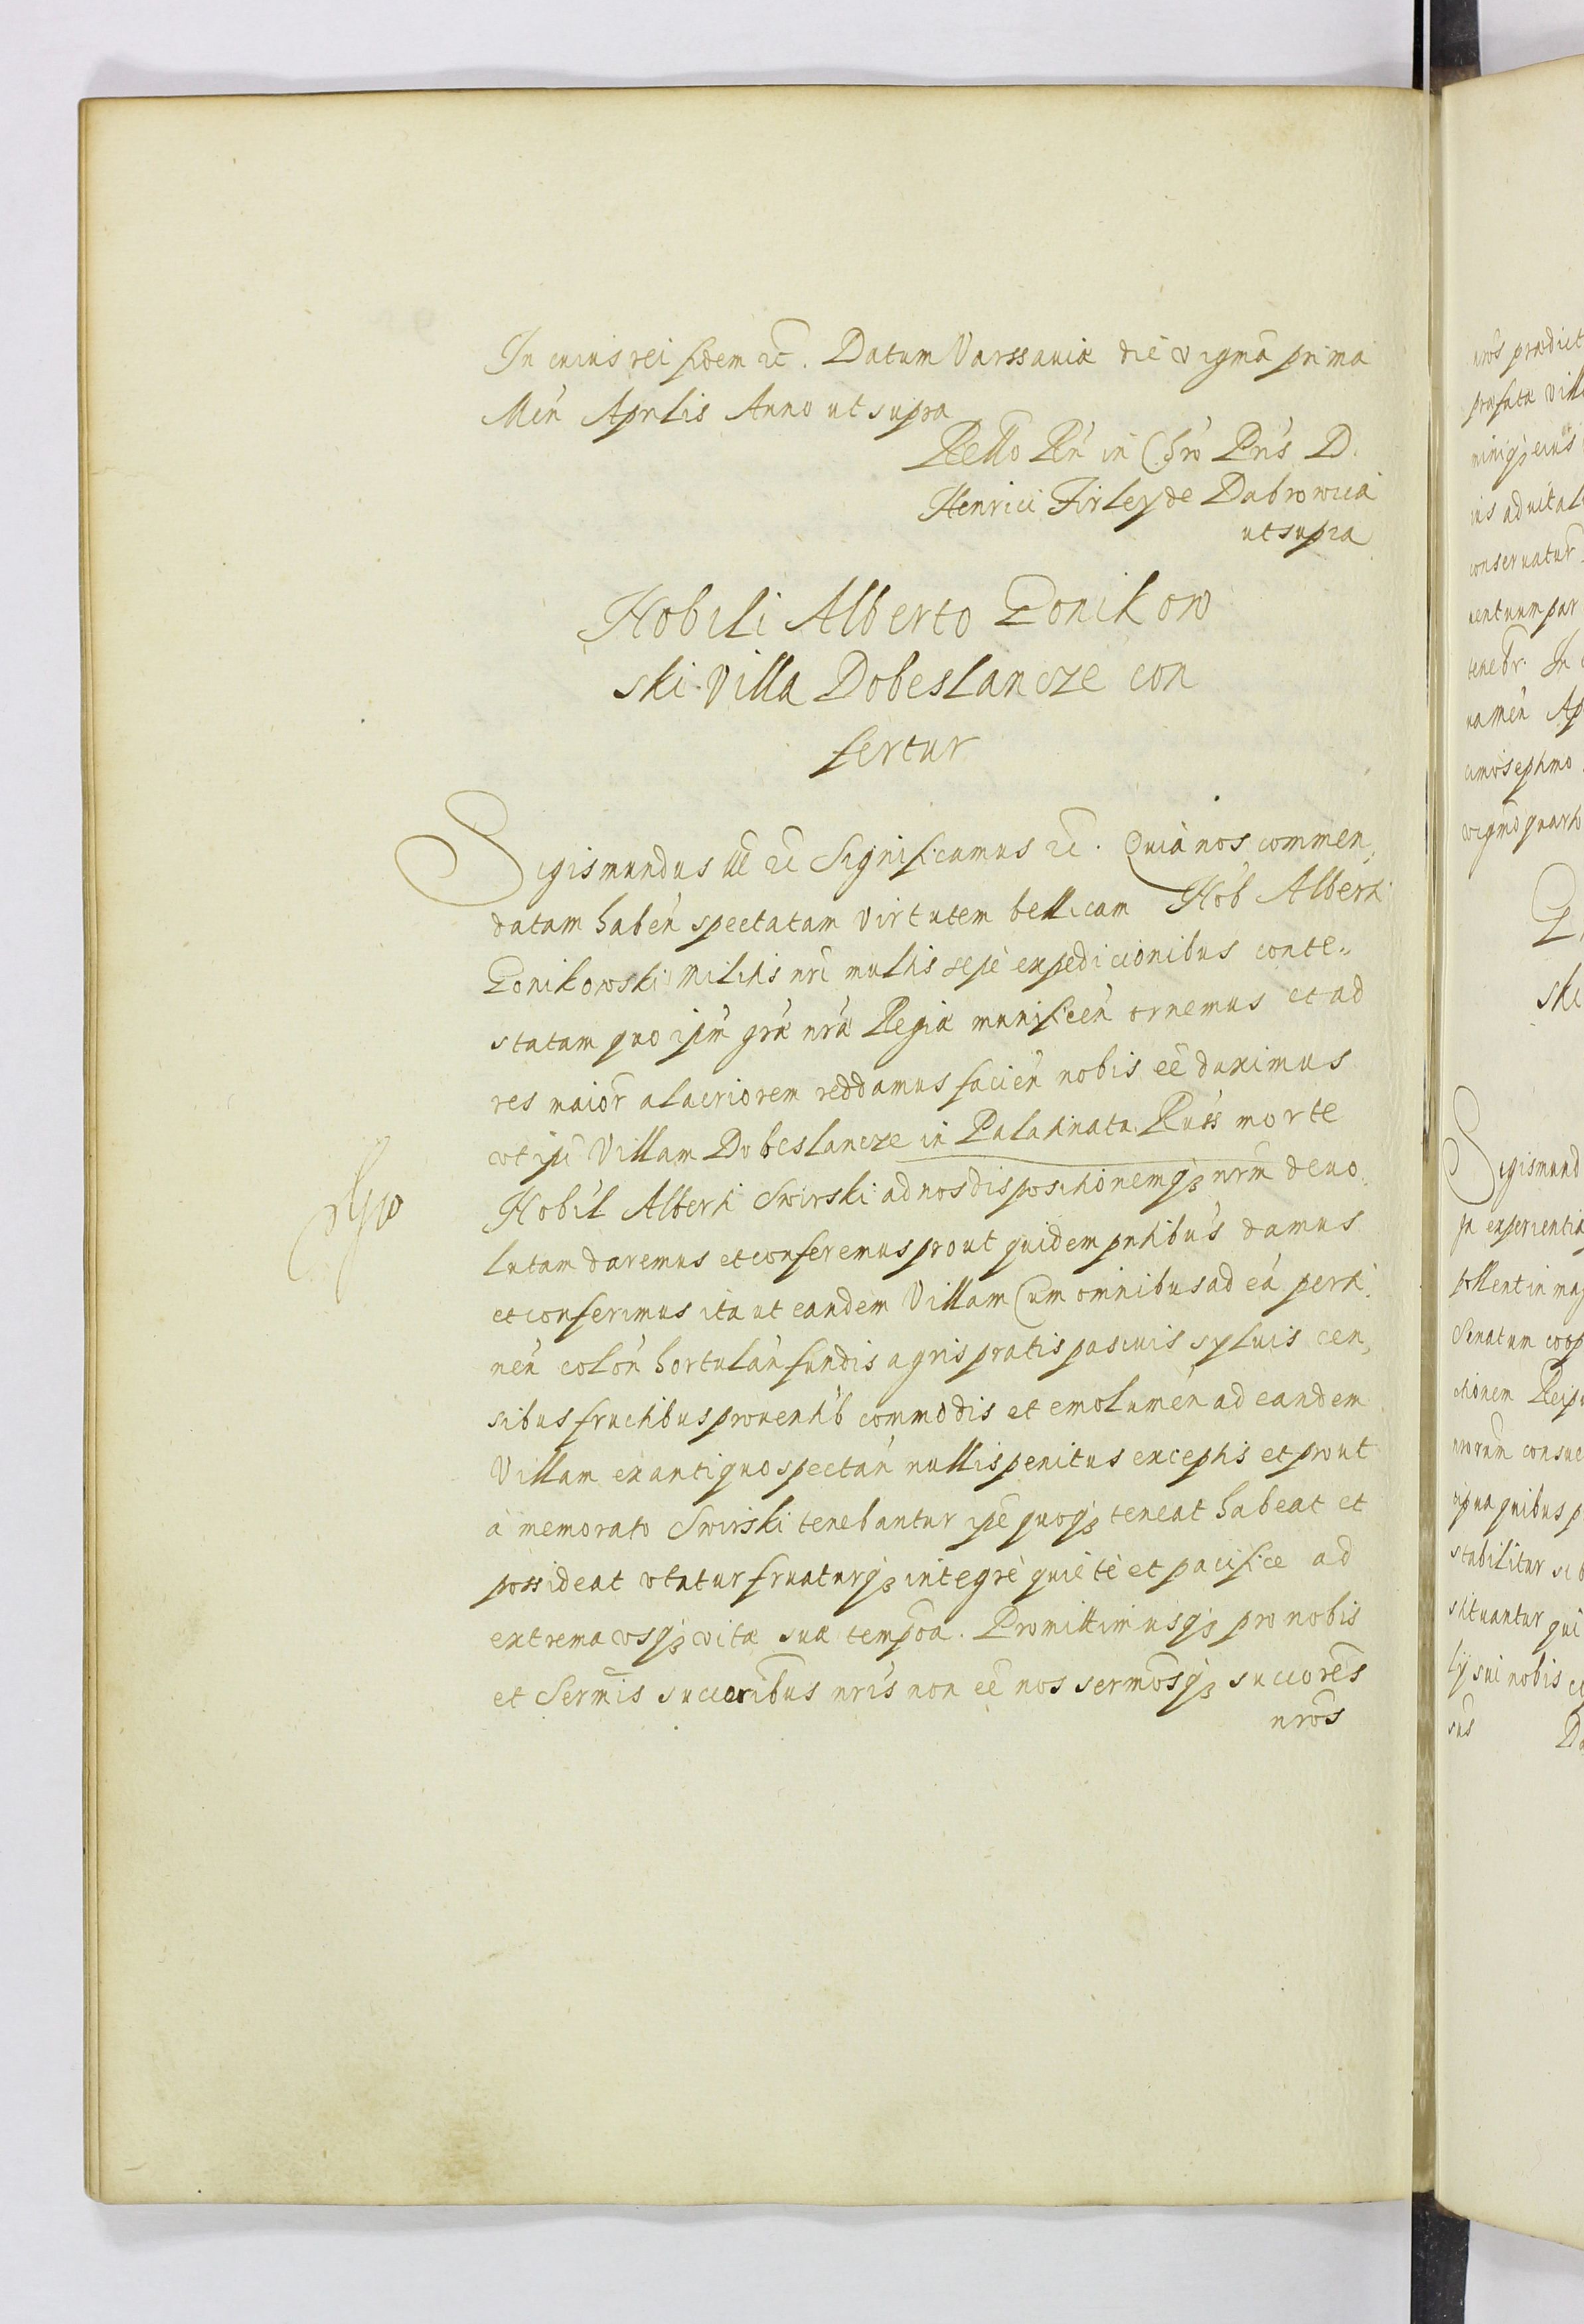 In cuius rei fidem etc. Datum Varssaviæ die vigma prima
Men Aprilis Anno ut supra
Rello Rn in Chro Pris D.
Henrici Firley de Dabrowica
ut supra
Nobili Alberto Ponikow
ski Villa Dobeslancze con
fertur
Sigismundus III etc Significamus etc. Quia nos commen,
datam haben spectatam virtutem bellicam Nob Alberti
Ponikowski Militis nri multis sepe expedicionibus conte-
statam quo ipm gra nra Regiæ munificen ornemus et ad
res maior alacriorem reddamus facien nobis ee duximus
vt ipi Villam Dobeslancze in Palatinatu Russ morte
Nobil Alberti Swirski ad nos dispositionemq3 nrm devo,
lutam daremus et conferemus prout quidem pntibus damus
et conferimus ita ut eandem Villam Cum omnibus ad ea perti,
nen colon hortulan fundis agris pratis pascuis sylvis cen,
sibus fructibus proventib commodis et emolumen ad eandem
Villam ex antiquo spectan nullis penitus exceptis et prout
a memorato Swirski tenebantur ipe quoq3 teneat habeat et
possideat vtatur fruaturq3 integre quiete et pacifice ad
extrema vsq3 vitæ suæ tempoa. Promittimusq3 pro nobis
et Sermis succoribus nris non ee nos sermosq3 succores
nros
nros prædict
præfata Vill
ius ad vital
conservatur
ventuum par
tenebr. In
na Men Ap
cimo septimo
vigmo quarto
P
ski
Sigismund
pollent in mag
Senatum coop
morum consue
stabilitur
situantur qui
sui nobis
sus
Da